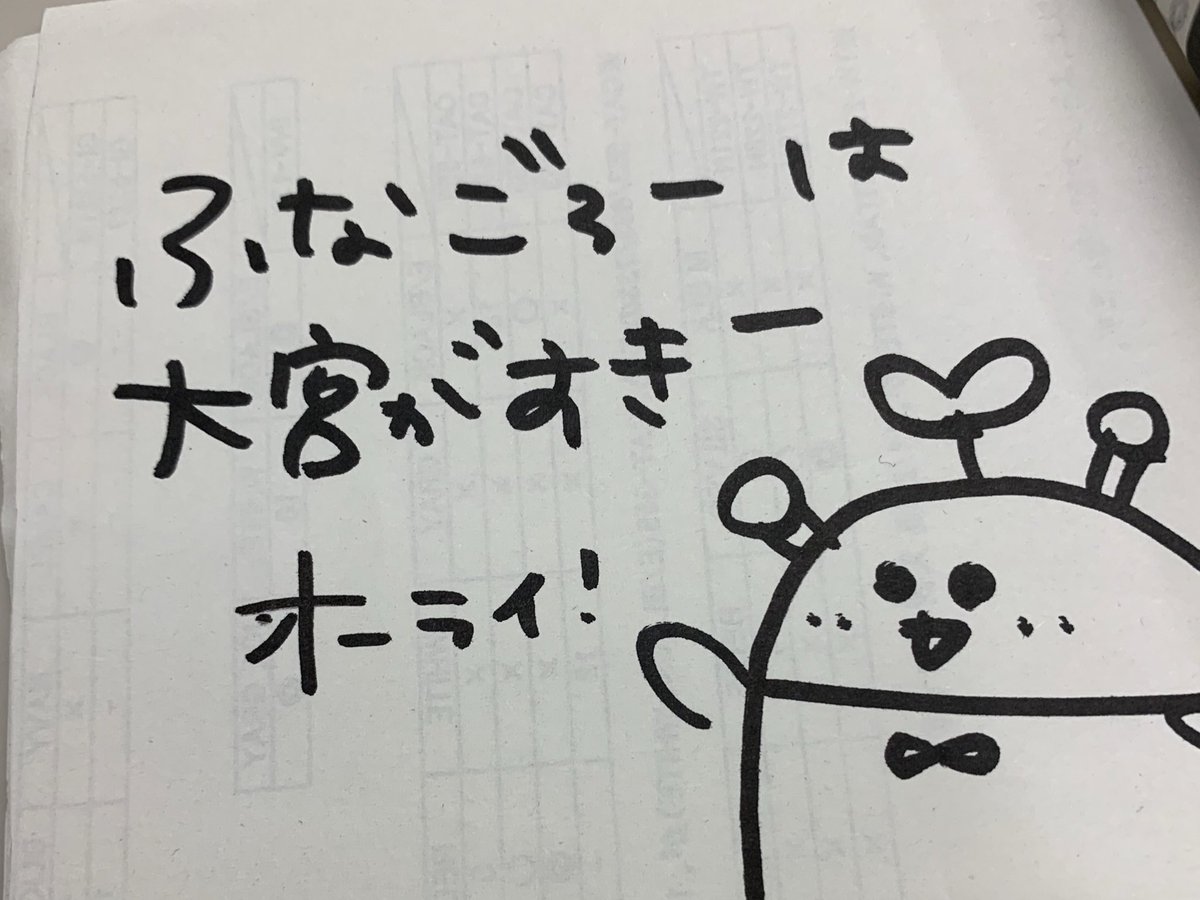 ふなごろーは
大宮がすきー
オーライ!